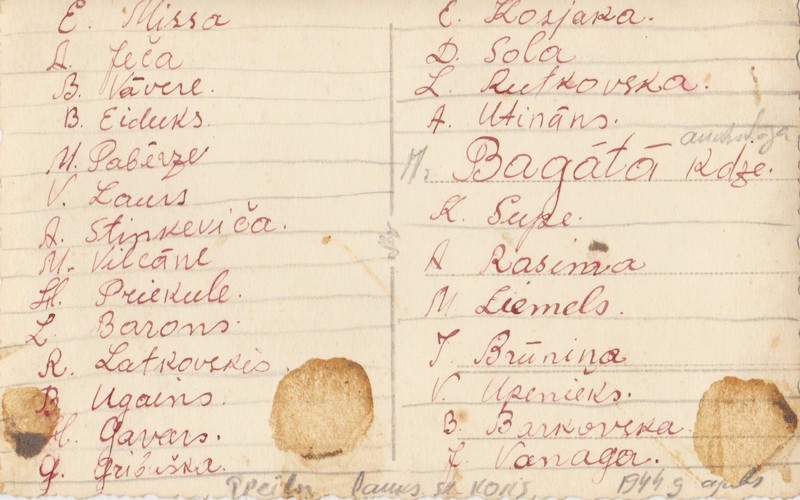 E. Missa
A. Ječa
B. Vāvere.
B. Eiduks.
M. Pabērze
V. Laurs
A. Stinkeviča.
M. Vilcāne
H. Priekule.
L. Barons.
R. Latkovskis.
B. Ugains.
H. Gavars.
G. Gribuška.
E. Kozjaka.
D. Sola
L. Rutkovska.
A. Utināns.
M. Bagātā Kdze.
K. Supe.
A Rasima
M Liemels.
J. Brūniņa
V. Upenieks.
B. Barkovska
J. Vanaga.
1944 g